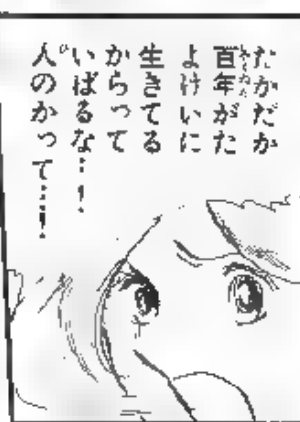 たかだか
百年がた
よけいに
生きてる
からって
いばるな…！
人のかって…！